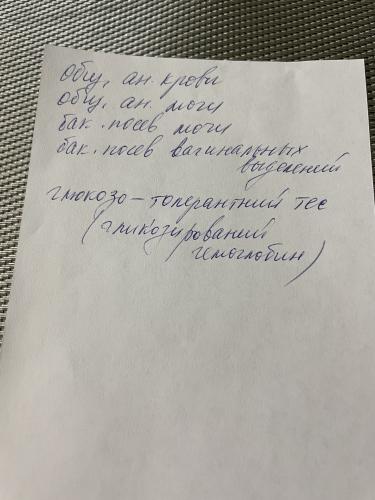 общ. ан. крови
общ. ан. мочи
бак. посев мочи
бак. посев вагинальных
выделений
глюкозо – толерантний тес
(глікозурований
гемоглобин)